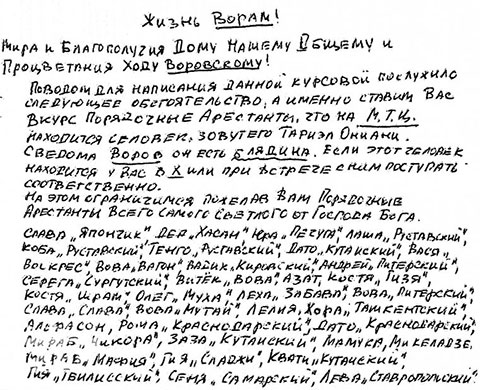 Жизнь Ворам!
Мира и Благополучия Дому Нашему Общему и
Процветания Ходу Воровскому!
Поводом для написания данной курсовой послужило
следующее обстоятельство, а именно ставим Вас
в курс Порядочные Арестанты, что на М.Т.Ц.
находится селовек, зовут его Тариэл Ониани.
Сведома Воров он есть Блядина. Если этот человек
находится у Вас в Х или при встрече с ним поступать
соответственно.
На этом ограничимся пожелав Вам Порядочные
Арестанты Всего Самого Светлого от Господа Бога.
Слава „Япончик" Дед „Хасан" Юра „Пичуга" Лаша „Руставский",
Коба „Руставский", Тенго „Руставский", Дато „Кутаиский", Вася „
Воскрес" Вова „Вагон" Вадик „Кировский", Андрей „Питерский",
Серега „Сургутский", Витёк, „Вова", Азат, Костя „Гизя",
Костя „Шрам" Олег „Муха" Леха „Забава", Вова „Питерский",
Слава, „Слава" Вова „Мутай" Лелия, Хора, „Ташкентский",
Альфасон, Рома „Краснодарский", Дато „Краснодарский",
Мираб, „Чикора", Заза „Кутаиский", Мамука, Микеладзе,
Мираб „Мафия", Гия „Сладжи", Квати „Кутаиский",
Гия „Тбилисский", Сеня „Самарский", Лева „Ставропольский"